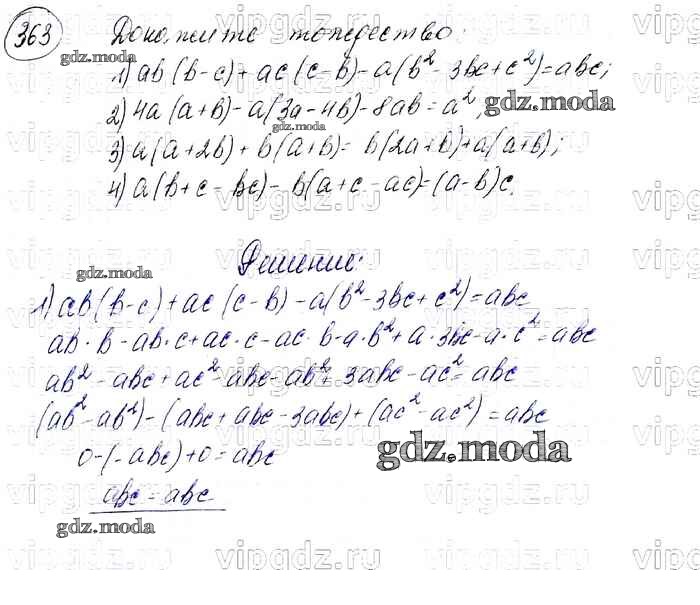 363 Докажите тождество:
1) ab(b-c)+ac(c-b)-a(b²-3bc+c²)=abc;
2) 4a(a+b)-a(3a-4b)-8ab=a²;
3) a(a+2b)+b(a+b)=b(2a+b)+a(a+b);
4) a(b+c-bc)-b(a+c-ac)=(a-b)c.
Решение:
1) ab(b-c)+ac(c-b)-a(b²-3bc+c²)=abc
ab·b-ab·c+ac·c-ac·b-a·b²+a·3bc-a·c²=abc
ab²-abc+ac²-abc-ab²+3abc-ac²=abc
(ab²-ab²)-(abc+abc-3abc)+(ac²-ac²)=abc
0-(-abc)+0=abc
abc=abc
gdz.moda
gdz.moda
gdz.moda
gdz.moda
gdz.moda
gdz.moda
vipgdz.ru